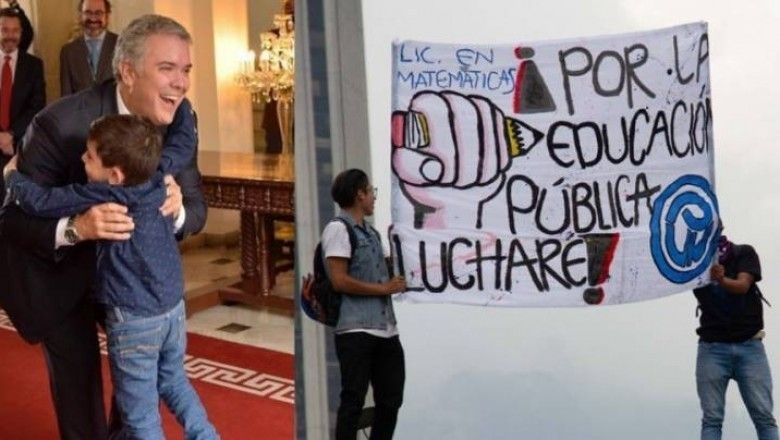 LIC. EN
MATEMÁTICAS
¡POR LA
EDUCACIÓN
PÚBLICA
LUCHARÉ!